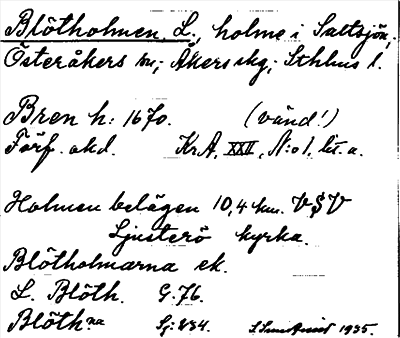 Blötholmen, L., holme i Saltsjön,
Österåkers sn; Åkers skg; Sthlms l.
Bren h: 1670. (vänd!)
Förf. okd. Kr.A. XXII, N:o 1, lit. a.
Holmen belägen 10,4 km. VSV
Ljusterö kyrka.
Blötholmarna ek.
L. Blöth. G. 76.
Blöth:na Sj: 234. 1935.